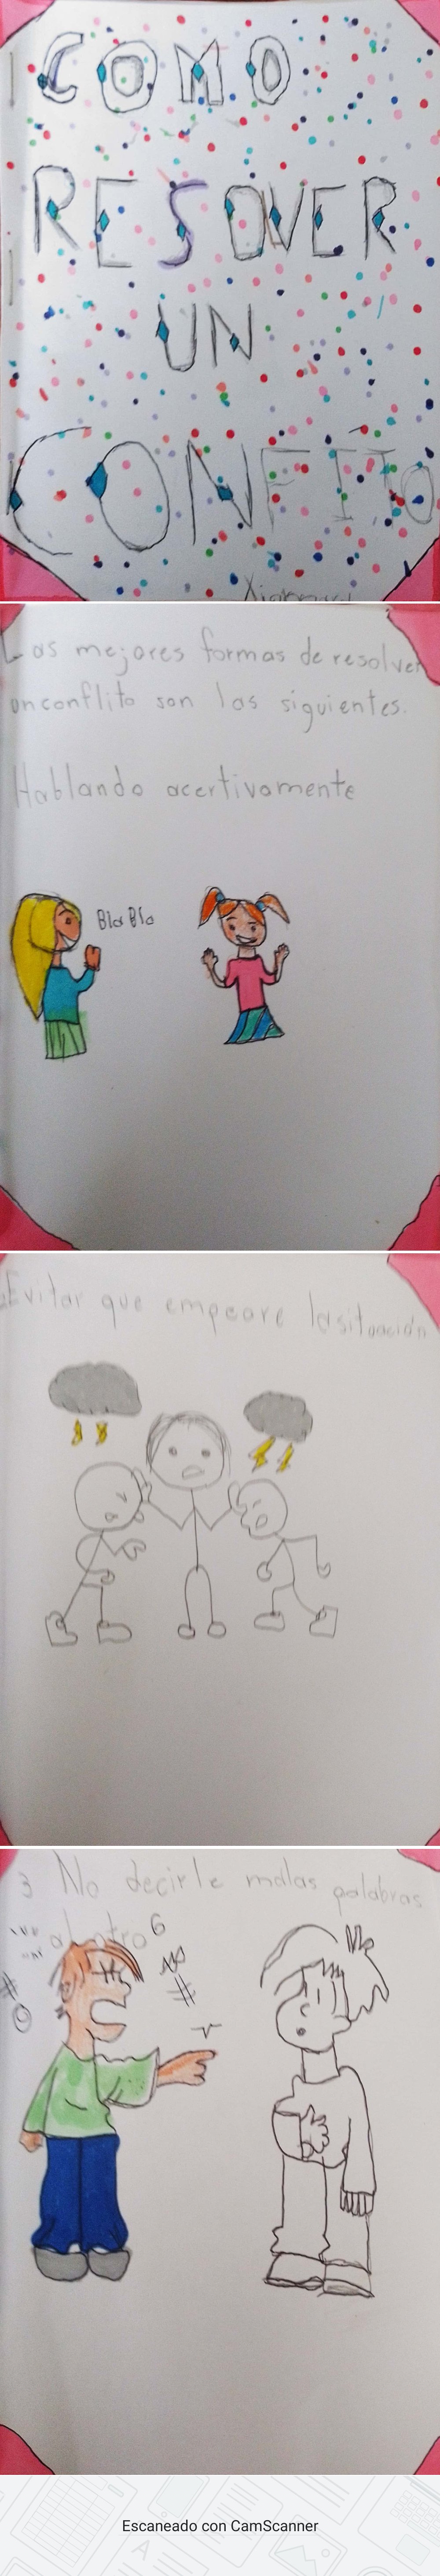 COMO
RESOVER
UN
CONFÍTO
Las mejores formas de resolver
un conflito son las siguientes.
Hablando acertivamente
Bla Bla
Evitar que empeore la situación
3 No decirle malas palabras
al otro
Escaneado con CamScanner